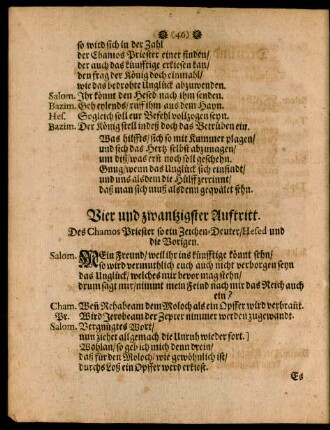 (46)
so wird sich in der Zahl
der Chamos Priester einer finden/
der auch das künfftige erkiesen kan/
den frag der König doch einmahl/
wie das bedrohte Unglück abzuwenden.
Salom. Ihr könnt den Hesed nach ihm senden.
Bazim. Geh eylends/ ruff ihm aus dem Hayn.
Hes. Sogleich soll eur Befehl vollzogen seyn.
Bazim. Der König stell indeß doch das Betrüben ein.
Was hilffts/ sich so mit Kummer plagen/
und sich das Hertz selbst abzunagen/
um diß/ was erst noch soll geschehn.
Gnug/ wenn das Unglück sich einfindt/
und uns alsdenn die Hülff zerrinnt/
daß man sich muß alsdenn gequälet sehn.
Vier und zwantzigster Aufftritt.
Des Chamos Priester so ein Zeichen-Deuter/ Hesed und
die Vorigen.
Salom. MEin Freund/ weil ihr ins künfftige könnt sehn/
so wird vermuthlich euch auch nicht verborgen seyn
das Unglück/ welches mir bevor mag stehn/
drum sagt mir/ nimmt mein Feind nach mir das Reich auch
ein?
Cham. Weñ Rehabeam dem Moloch als ein Opffer wird verbrañt.
Pr. Wird Jerobeam der Zepter nimmer werden zugewandt.
Salom. Vergnügtes Wort/
nun ziehet allgemach die Unruh wieder fort.]
Wohlan/ so geb ich mich denn drein/
daß für den Moloch/ wie gewöhnlich ist/
durchs Loß ein Opffer werd erkiest.
Es